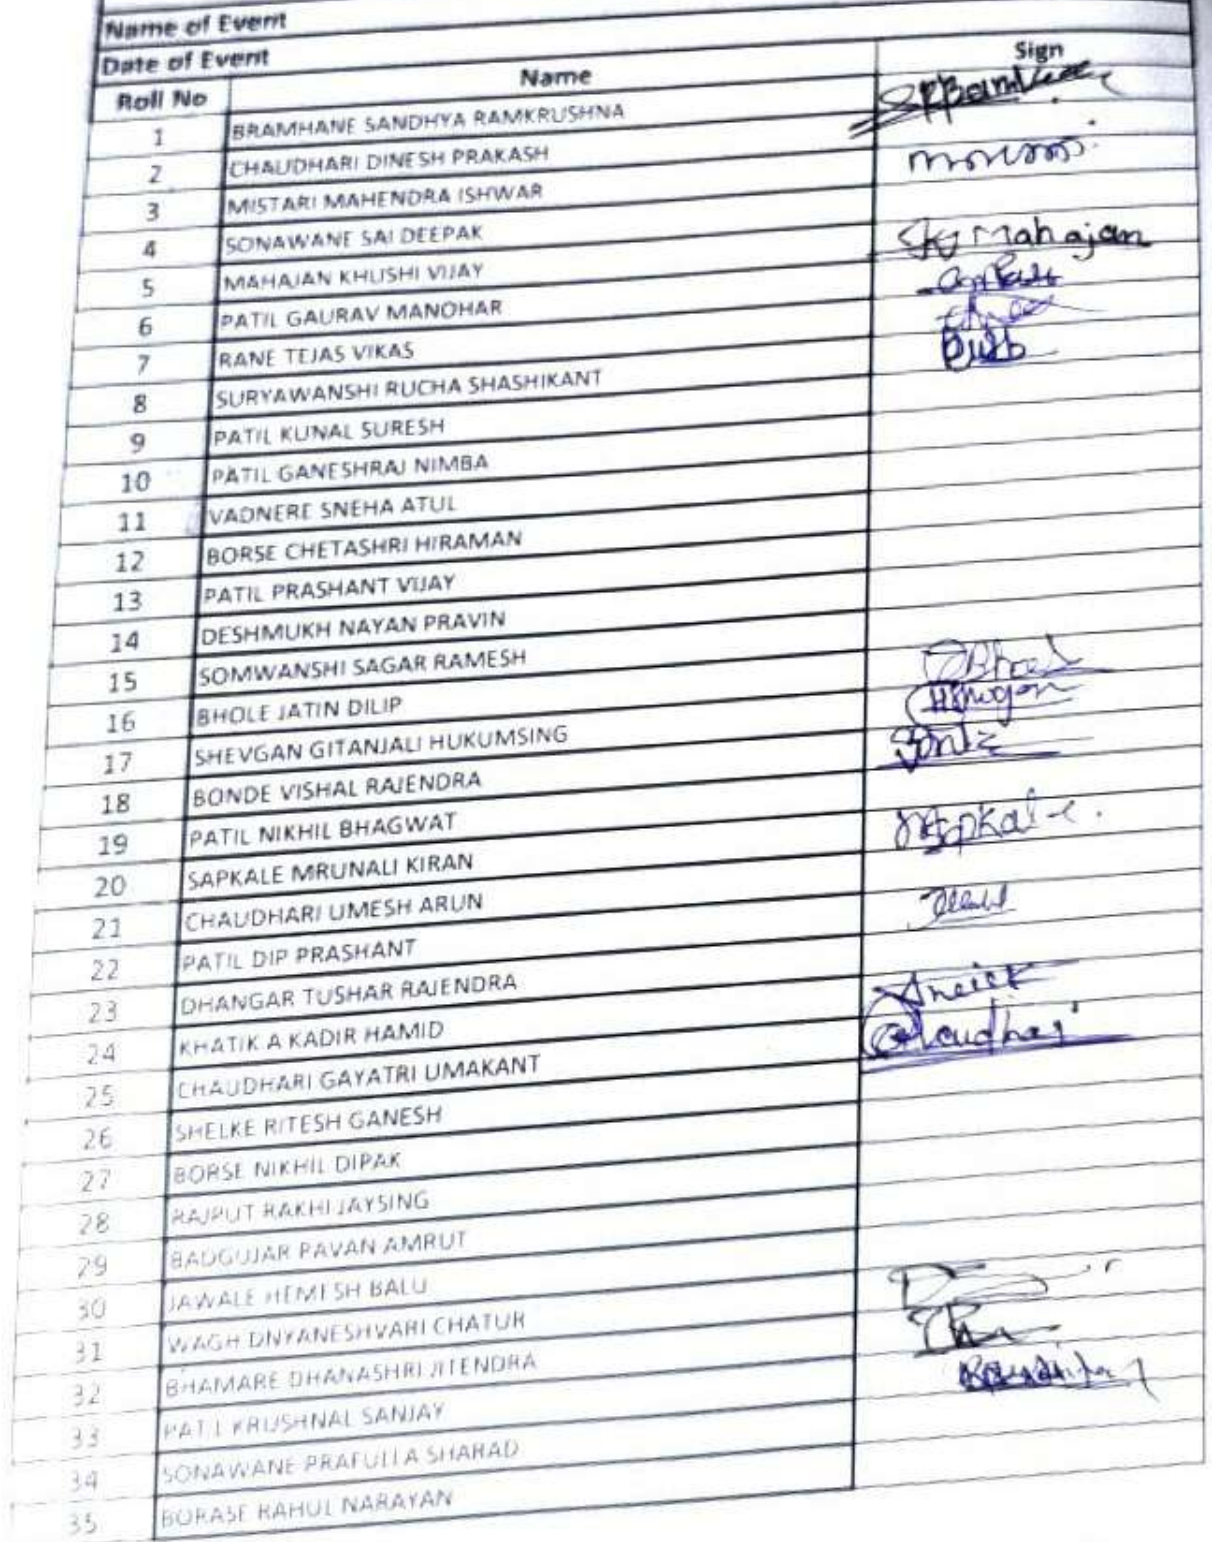 Name of Event
Date of Event
Roll No Name Sign
1 BRAMHANE SANDHYA RAMKRUSHNA
2 CHAUDHARI DINESH PRAKASH
3 MISTARI MAHENDRA ISHWAR
4 SONAWANE SAI DEEPAK
5 MAHAJAN KHUSHI VIJAY Mahajan
6 PATIL GAURAV MANOHAR
7 RANE TEJAS VIKAS
8 SURYAWANSHI RUCHA SHASHIKANT
9 PATIL KUNAL SURESH
10 PATIL GANESHRAJ NIMBA
11 VADNERE SNEHA ATUL
12 BORSE CHETASHRI HIRAMAN
13 PATIL PRASHANT VIJAY
14 DESHMUKH NAYAN PRAVIN
15 SOMWANSHI SAGAR RAMESH
16 BHOLE JATIN DILIP
17 SHEVGAN GITANJALI HUKUMSING
18 BONDE VISHAL RAJENDRA
19 PATIL NIKHIL BHAGWAT
20 SAPKALE MRUNALI KIRAN
21 CHAUDHARI UMESH ARUN
22 PATIL DIP PRASHANT
23 DHANGAR TUSHAR RAJENDRA
24 KHATIK A KADIR HAMID
25 CHAUDHARI GAYATRI UMAKANT
26 SHELKE RITESH GANESH
27 BORSE NIKHIL DIPAK
28 RAJPUT RAKHI JAYSING
29 BADGUJAR PAVAN AMRUT
30 JAWALE HEMESH BALU
31 WAGH DNYANESHVARI CHATUR
32 BHAMARE DHANASHRI JITENDRA
33 PATIL KRUSHNAL SANJAY
34 SONAWANE PRAFULLA SHARAD
35 BORASE RAHUL NARAYAN